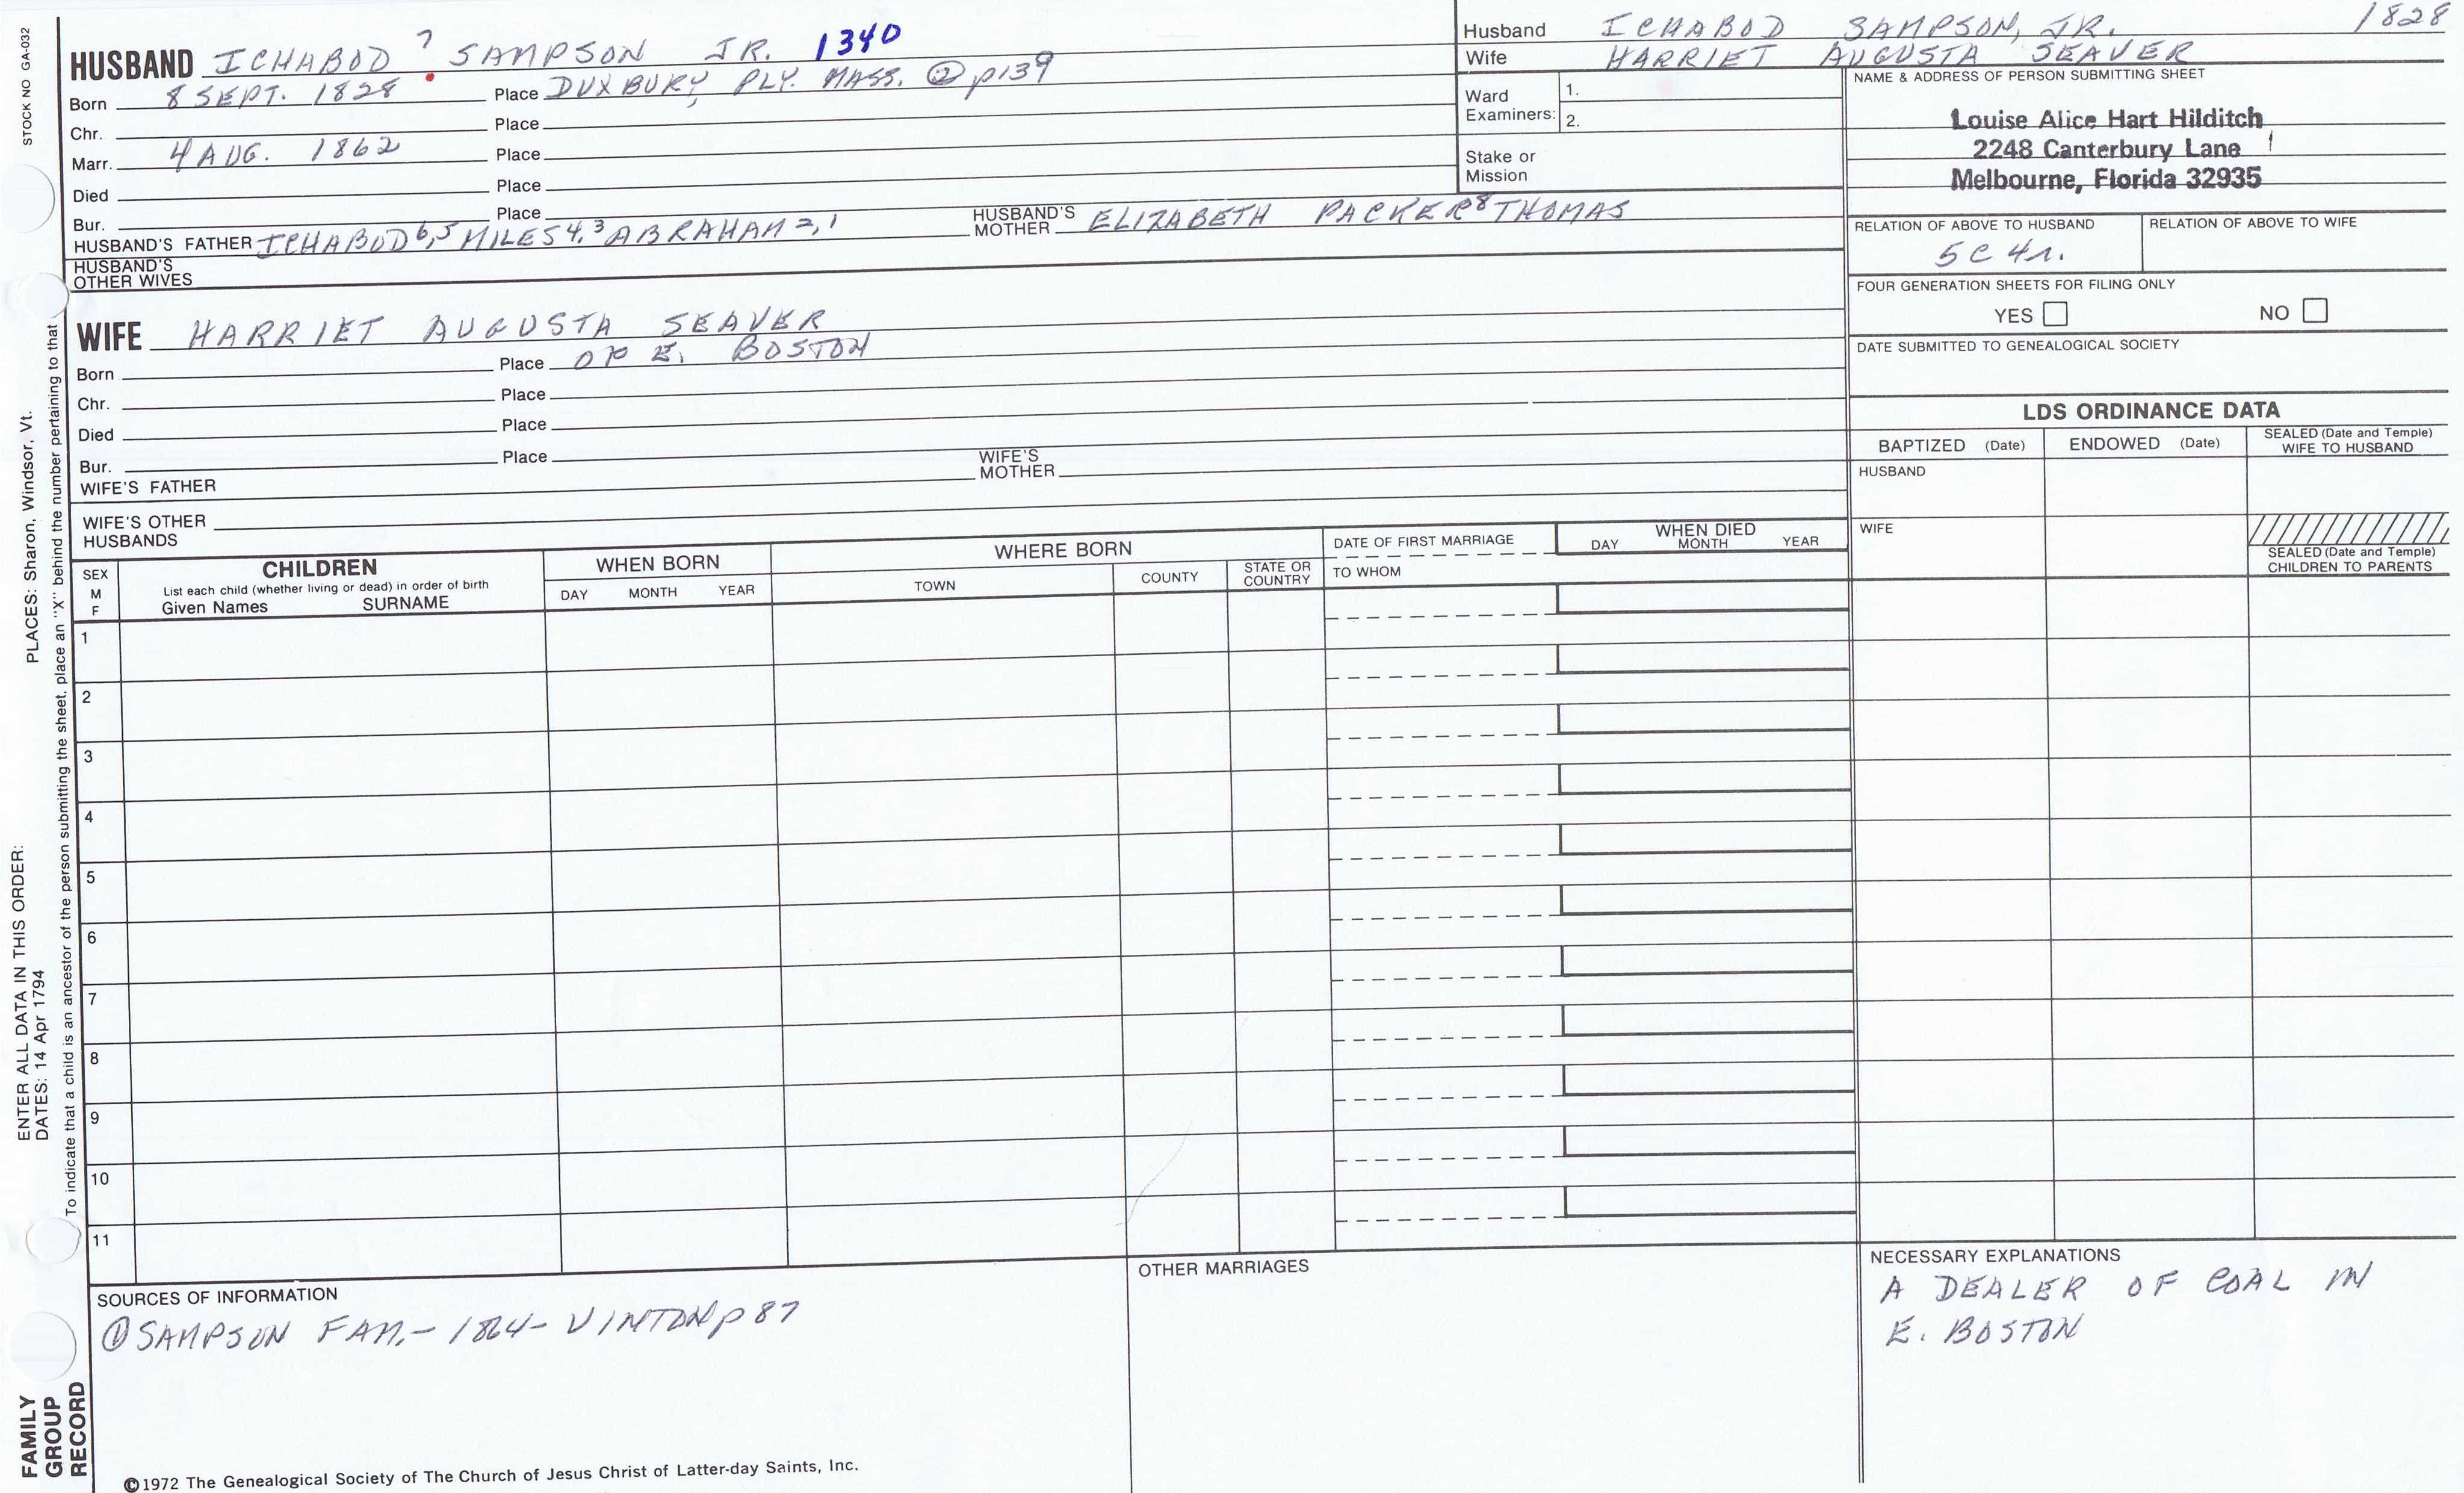 STOCK NO GA-032
HUSBAND ICHABOD ? SAMPSON JR. 1340
Born 8 SEPT. 1828 Place DUXBURY, PLY. MASS. ② p139
Chr. Place
Marr. 4 AUG. 1862 Place
Died Place
Bur. Place
HUSBAND'S FATHER ICHABOD 6,5 MILES 4,3 ABRAHAM 2,1 HUSBAND'S MOTHER ELIZABETH PACKER 8 THOMAS
HUSBAND'S OTHER WIVES
Husband ICHABOD SAMPSON, JR. 1828
Wife HARRIET AUGUSTA SEAVER
Ward Examiners: 1.
2.
Stake or Mission
NAME & ADDRESS OF PERSON SUBMITTING SHEET
Louise Alice Hart Hilditch
2248 Canterbury Lane
Melbourne, Florida 32935
RELATION OF ABOVE TO HUSBAND RELATION OF ABOVE TO WIFE
5C 4r.
FOUR GENERATION SHEETS FOR FILING ONLY
YES NO
DATE SUBMITTED TO GENEALOGICAL SOCIETY
WIFE HARRIET AUGUSTA SEAVER
Born Place OF E. BOSTON
Chr. Place
Died Place
Bur. Place
WIFE'S FATHER WIFE'S MOTHER
WIFE'S OTHER HUSBANDS
LDS ORDINANCE DATA
BAPTIZED (Date) ENDOWED (Date) SEALED (Date and Temple) WIFE TO HUSBAND
HUSBAND
WIFE
SEALED (Date and Temple) CHILDREN TO PARENTS
SEX M F
CHILDREN
List each child (whether living or dead) in order of birth
Given Names SURNAME
WHEN BORN
DAY MONTH YEAR
WHERE BORN
TOWN COUNTY STATE OR COUNTRY
DATE OF FIRST MARRIAGE
TO WHOM
WHEN DIED
DAY MONTH YEAR
1
2
3
4
5
6
7
8
9
10
11
SOURCES OF INFORMATION
① SAMPSON FAM. - 1864 - VINTON p 87
OTHER MARRIAGES
NECESSARY EXPLANATIONS
A DEALER OF COAL IN
E. BOSTON
©1972 The Genealogical Society of The Church of Jesus Christ of Latter-day Saints, Inc.
FAMILY
GROUP
RECORD
ENTER ALL DATA IN THIS ORDER:
DATES: 14 Apr 1794
PLACES: Sharon, Windsor, Vt.
To indicate that a child is an ancestor of the person submitting the sheet, place an "X" behind the number pertaining to that